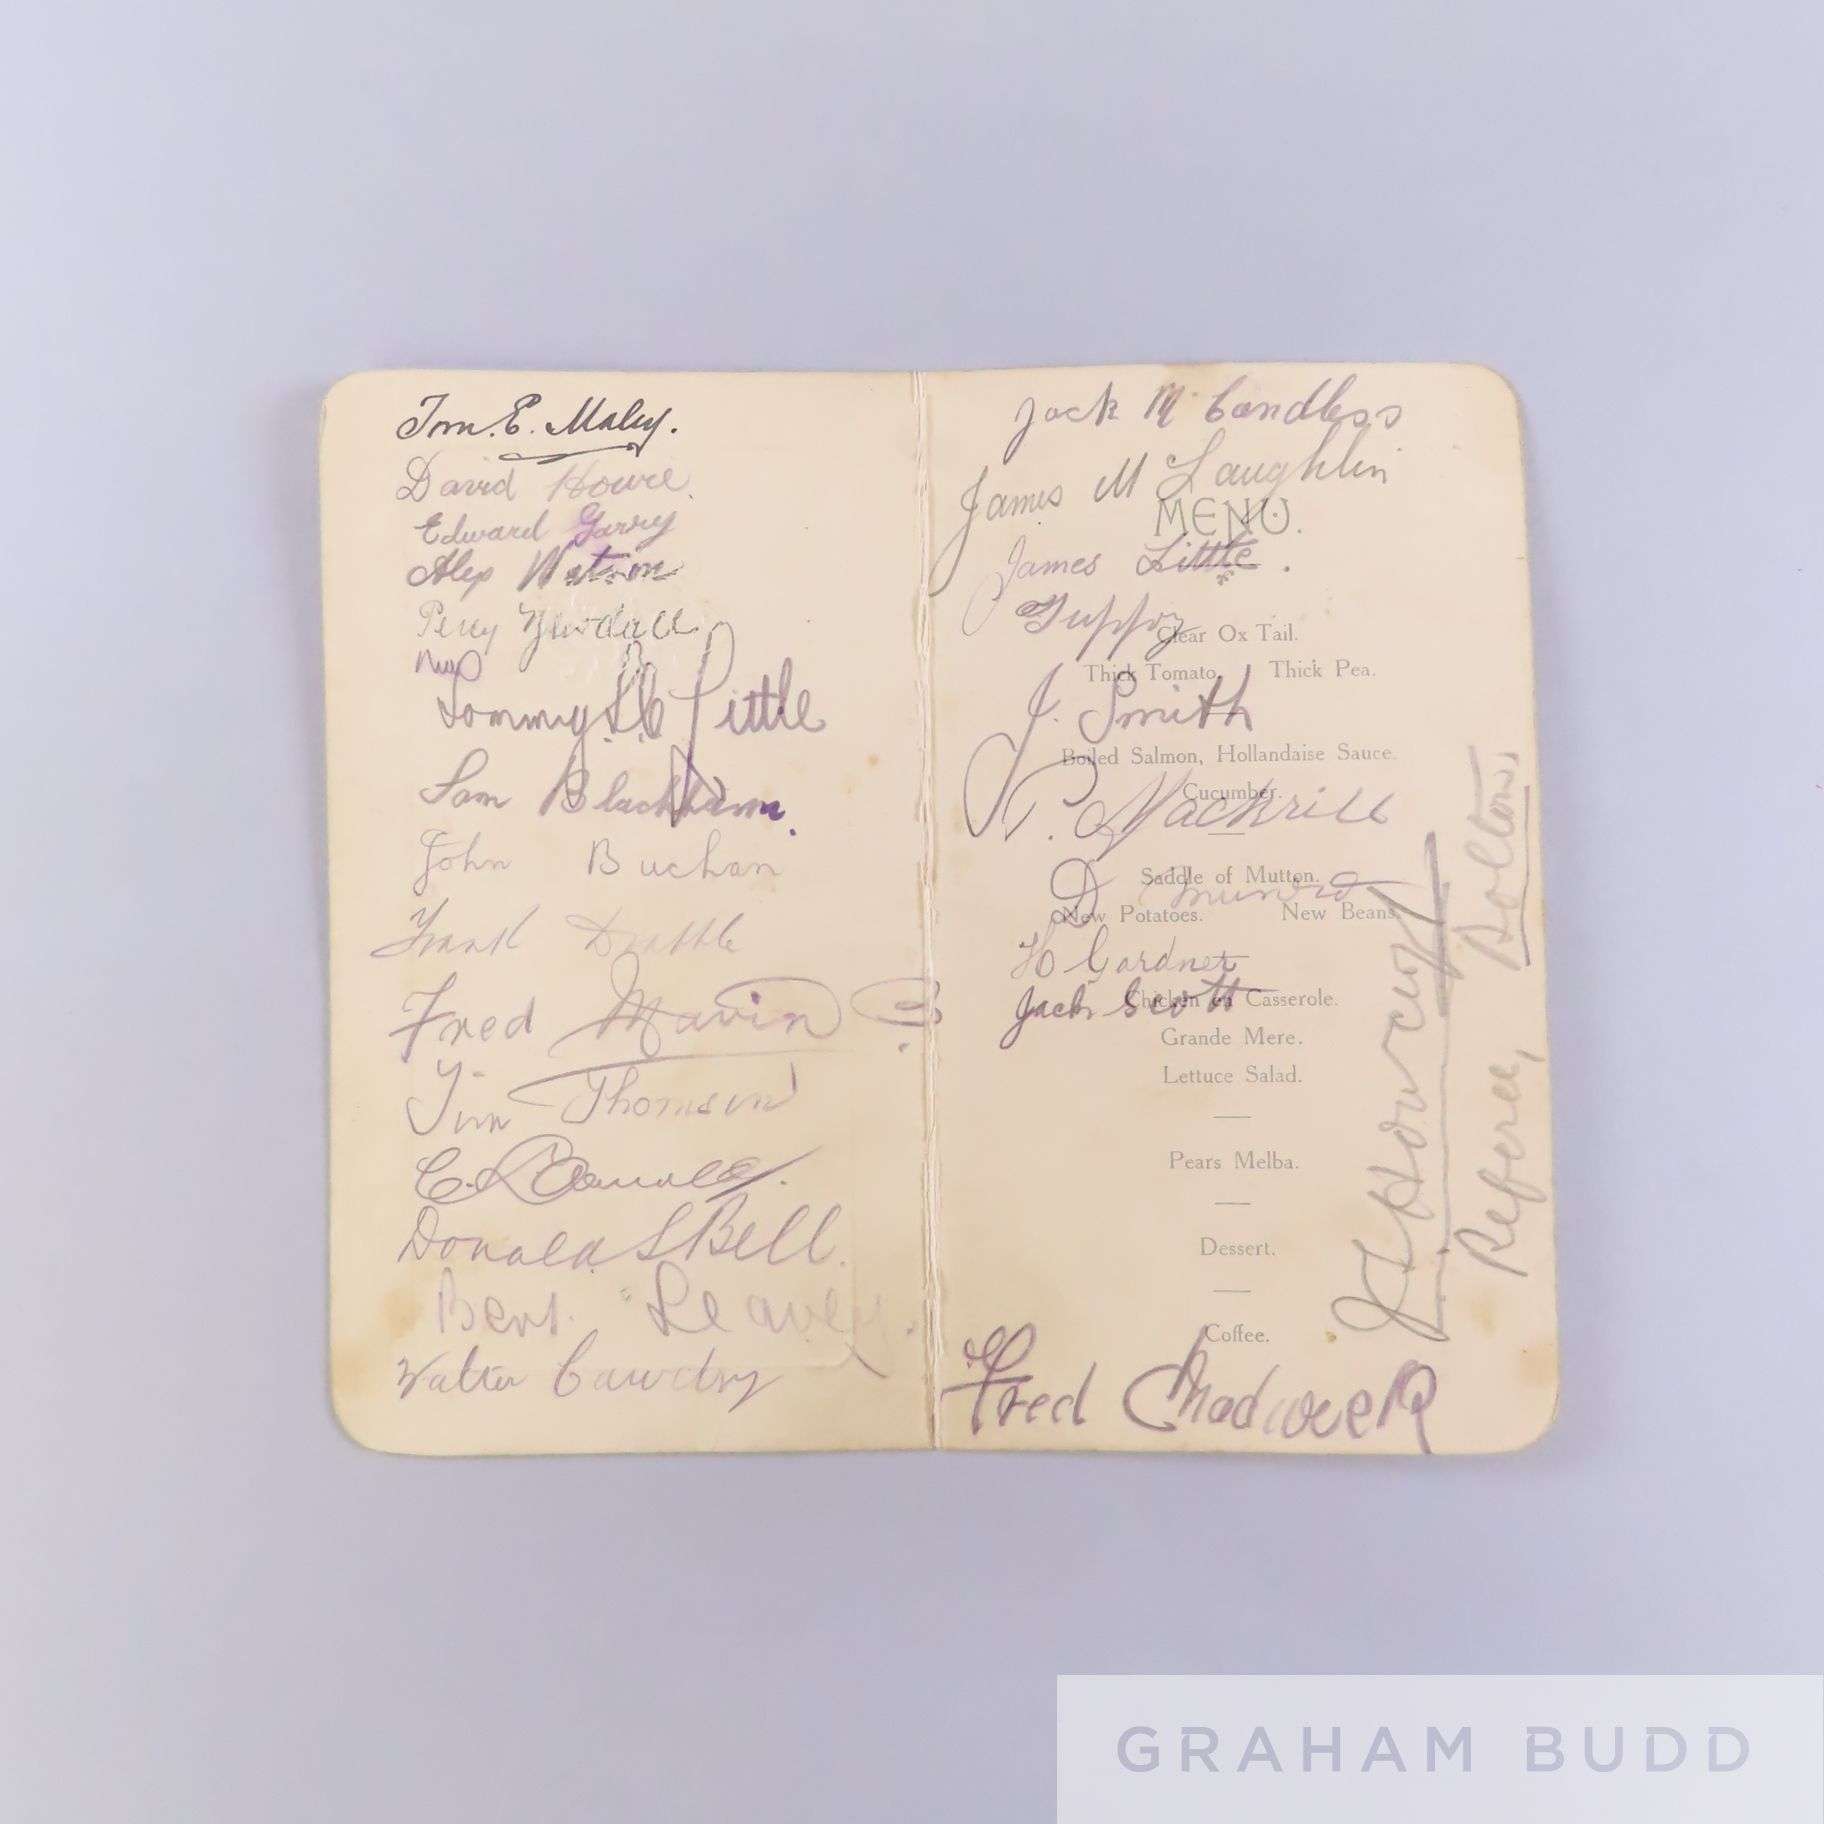 Tom. E. Maley.
David Howie.
Edward Garry
Alex Watson
Percy
Tommy Little
Sam Blackham.
John Buchan
Frank Drabble
Fred Mavin
Jim Thomson
Donald S Bell.
Bert. Leavey.
Walter Cawdry
Jack McCandless
James McLaughlin
MENU.
James Little.
Clear Ox Tail.
Thick Tomato. Thick Pea.
J. Smith
Boiled Salmon, Hollandaise Sauce.
Cucumber.
P. Mackrill
Saddle of Mutton.
D
New Potatoes. New Beans.
H Gardner
Jack Scott
Chicken en Casserole.
Grande Mere.
Lettuce Salad.
Pears Melba.
Dessert.
Coffee.
Fred Chadwick
J T Howcroft
Referee, Bolton.
GRAHAM BUDD